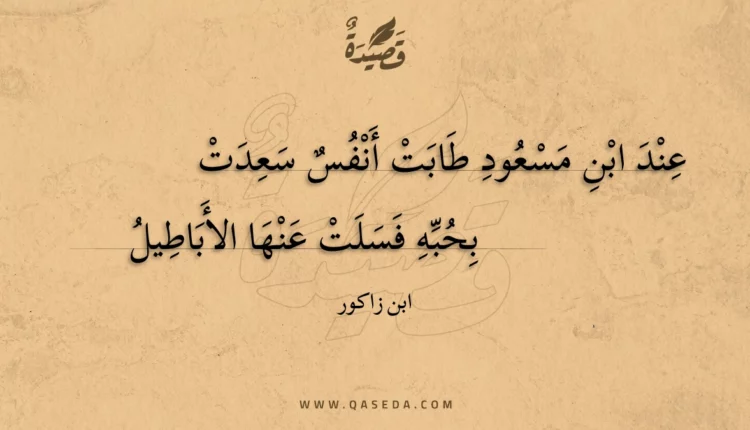 قَصِيدَةٌ
عِنْدَ ابْنِ مَسْعُودِ طَابَتْ أَنْفُسٌ سَعِدَتْ
بِحُبِّهِ فَسَلَتْ عَنْهَا الأَبَاطِيلُ
ابن زاكور
WWW.QASEDA.COM